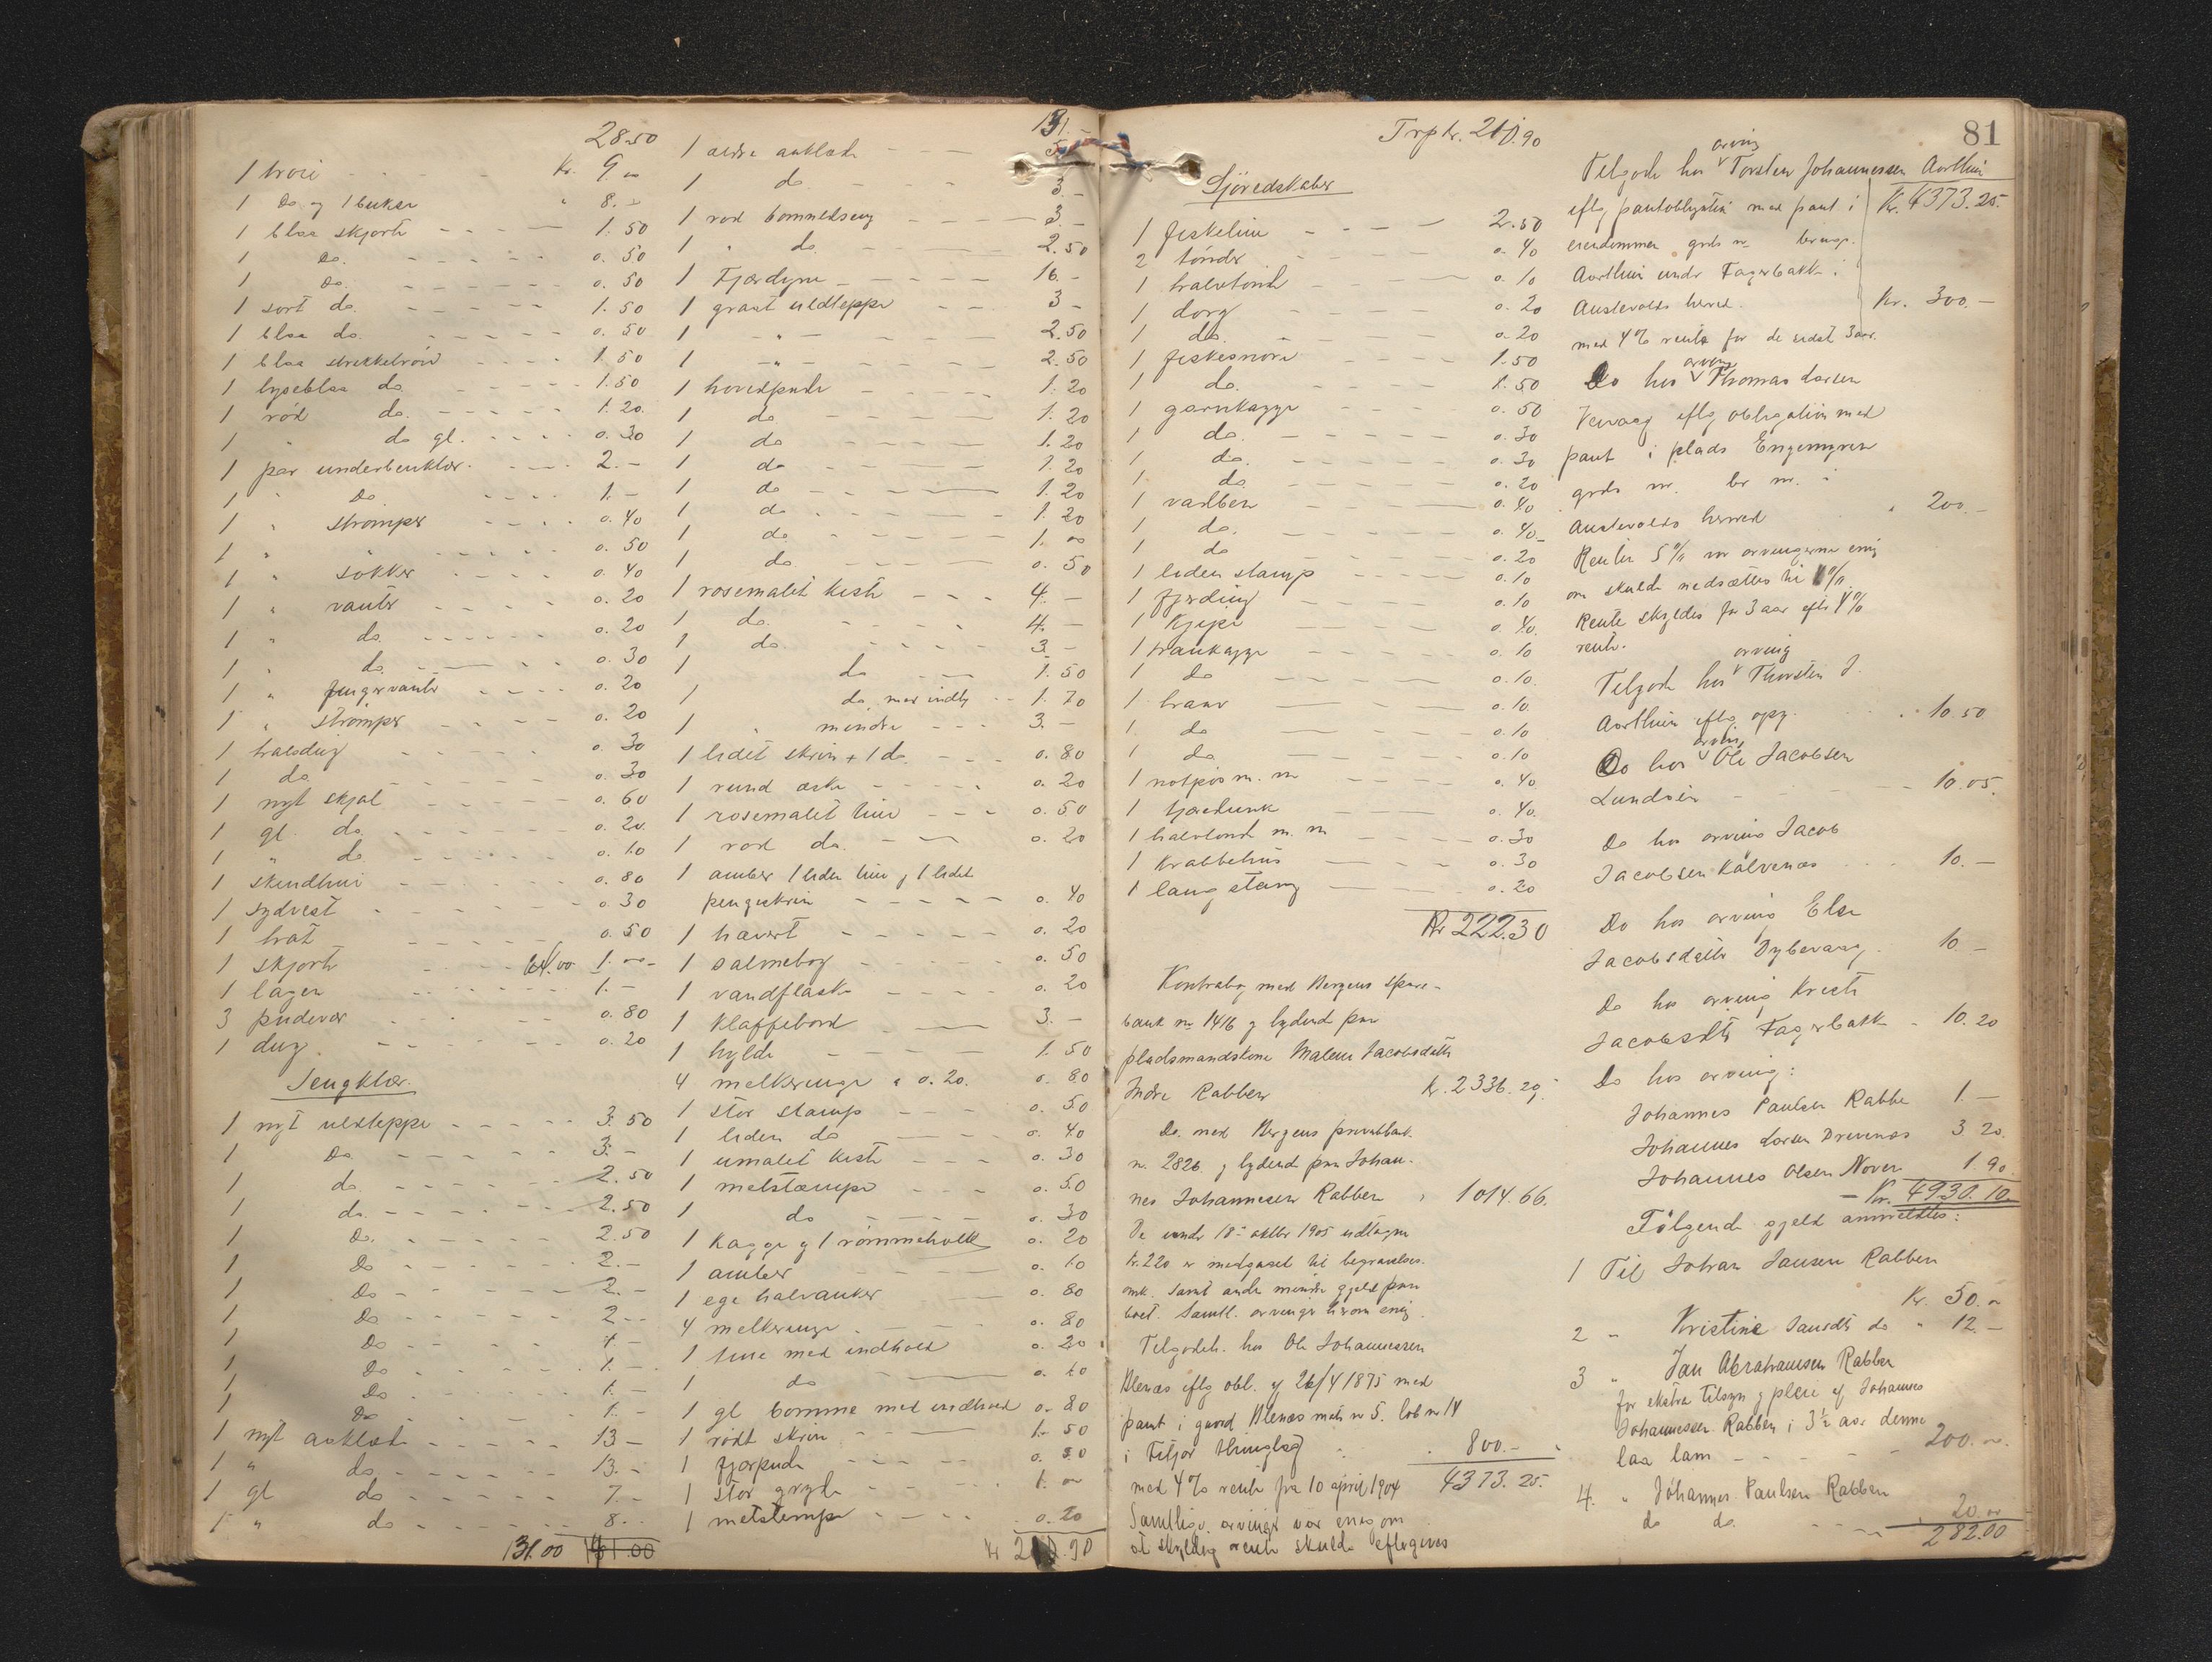 28.50
1 troie - - - Kr. 9.00
1 Do og 1 buksr " 8.-
1 blaa skjorte - - - 1.50
1 Do. - - - 0.50
1 Do. - - - 0.50
1 sort do. - - - 1.50
1 blaa do. - - - 0.50
1 blaa strikketröie - - 1.50
1 lyseblaa do. - - - 1.50
1 röd do. - - - 1.20.
1 " do gl. - - - 0.30
1 par underbenklær. - - - 2.-
1 " Do - - - 1.-
1 " strömper - - - 0.40
1 " " - - - 0.50
1 " sokker - - - 0.40
1 " vanter - - - 0.20
1 " do. - - - 0.20
1 " do. - - - 0.30
1 " fingervanter - - - 0.20
1 " strömper - - - 0.20
1 halsdug - - - 0.30
1 do - - - 0.30
1 nyt skjal - - - 0.60
1 gl. do. - - - 0.20.
1 " do - - - 0.10
1 skindhue - - - 0.80
1 sydvest - - - 0.30
1 hat - - - 0.50
1 skjorte - - 64.00 1.00
1 lagen - - - 1.-
3 pudevar - - - 0.80
1 dug - - - 0.20
Sengklær.
1 nyt uldteppe - - - 3.50
1 Do - - - 3.-
1 do. - - - 2.50
1 do. - - - 2.50
1 Do. - - - 2.50
1 Do - - - 2.-
1 Do - - - 2.-
1 Do - - - 2.-
1 Do - - - 1.-
1 Do - - - 1.-
1 Do - - - 1.-
1 Do - - - 1.-
1 nyt aaklæde - - - 13.-
1 " do - - - 13.-
1 gl do - - - 7.-
1 " do - - - 8.-
131.00
131.-
1 ældre aaklæde - - - 5.-
1 do - - - 3.-
1 rod bommeldseng - - - 3.-
1 " do - - - 2.50
1 Fjærdyne - - - 16.-
1 graat uldteppe - - 3-
1 -"- 2.50
1 -"- 2.50
1 hovedpude - - - 1.20
1 do - - - 1.20
1 do - - - 1.20
1 do - - - 1.20
1 do - - - 1.20
1 do - - - 1.20
1 do - - - 1.00
1 do - - - 0.50
1 rosemalet kiste - - - 4.-
1 do. - - - 4.-
1 do. - - - 3.-
1 do - - 1.50
1 do, med indh - - 1.70
1 " mindre - - - 3.-
1 lidet skrin + 1 do - - - 0.80
1 rund æske - - - 0.20
1 rosemalet tine - - - 0.50
1 rod do. - - 0.20
1 amber 1 liden tine og 1 lidet
pengeskrin - - - 0.40
1 havert - - - 0.20
1 salmebog - - - 0.50
1 vandflaske - - - 0.20
1 klaffebord - - - 3.-
1 hylde - - - 1.50
4 melkeringe a 0.20. 0.80
1 stor stamp - - - 0.50
1 liden do - - - 0.40
1 umalet kiste - - - 0.30
1 melstampe - - - 0.50
1 do - - - 0.30
1 Kagge og 1 römmekolle 0.20
1 amber - - - 0.10
1 ege halvanker - - 0.80
4 melkeringe - - - 0.80
1 tine med indhold 0.20
1 do - - - 0.10
1 gl bomme med indhold 0.80
1 rödt skrin - - - 1.50
1 fjærpude - - - 0.50
1 stor gryde - - - 1.00
1 melstampe - - - 0.20
Trpkr. 210.90
Sjöredskaber
1 fiskeline - - - 2.50
2 tönder - - - 0.40
1 halvtönde - - - 0.10
1 dorg - - - 0.20
1 do. - - - 0.20
1 fiskesnöre - - - 1.50
1 do. - - - 1.50
1 garnkagge - - - 0.50
1 do. - - - 0.30
1 do. - - - 0.30
1 do - - - 0.20
1 vadben - - - 0.40
1 do. - - - 0.40
1 do - - - 0.20
1 liden stamp - - - 0.10
1 fjerding - - - 0.10
1 Kjipe - - - 0.40.
1 trankagge - - - 0.10
1 do - - - 0.10.
1 - - - 0.10.
1 do - - - 0.10
1 do - - - 0.10
1 notpös m. m - - - 0.40
1 tjæredunk - - - 0.40.
1 halvtönde m. m - - - 0.30
1 Krabbeteine - - - 0.30
1 lang stang - - - 0.20
Kr 222.30
Kontrabog med Bergens Spare-
bank no 1416 og lydende paa
pladsmandskone Malene Jacobsdatter
Indre Rabben Kr. 2336.29.
Do. med Bergens privatbank
no. 2826 og lydende paa Johan-
nes Johannesen Rabben " 1014.66.
De under 18de oktbr 1905 udtagne
Kr. 220 er medgaaet til begravelses-
omk. samt andre mindre gjeld paa
boet. Samtl. arvinger herom enig.
Tilgodeh. hos Ole Johannessen
Alenæs iflg obl. af 26/4 1875 med
pant i gaard Alenæs matr no 5. lob no 14
i Fitjar thinglag " 800.-
med 4% rente fra 10 april 1904 4373.25.
Samtlige arvinger var enes om
at skyldig rente skulde eftergives
81
Tilgode hos arving Torsten Johannessen Aarthun
Kr. 4373.25.
iflg pantobligation med pant i
eiendommen grds no brugs.
Aarthun under Fagerbakke i
Austevolds herred. Kr. 300.-
med 4% rente for de sidst 3 aar.
Do hos arving Thomas Larsen
Vervaag iflg obligation med
pant i plads Engemyren
grds nr. br nr. i
Austevolds herred " 200.-
Renter 5% var arvingerne enig
om skulde nedsættes til 4%.
Rente skyldes for 3 aar efter 4%
rente.
Tilgode hos arving Thorsten J.
Aarthun iflg opg. " 10.50
Do hos arving Ole Jacobsen
Lundöen - - - 10.05.
Do hos arving Jacob
Jacobsen Kalvenæs - - 10.-
Do hos arving Else
Jacobsdatter Dybevaag. 10.-
Do hos arving Kristi
Jacobsdtr Fagerbakke - 10.20
Do hos arving:
Johannes Paulsen Rabben 1.-
Johannes Larsen Drivenæs 3.20.
Johannes Olsen 1.90.
- Kr. 4930.10.
Fölgende gjeld anmeldtes:
1 Til Johan Jansen Rabben
Kr. 50.00
2 " Kristine Jansdtr do " 12.-
3 " Jan Abrahamsen Rabben
for ekstra tilsyn og pleie af Johannes
Johannessen Rabben i 3½ aar denne
laa lam - - - 200.00.
4. " Johannes Paulsen Rabben
do do. - - - 20.00
282.00